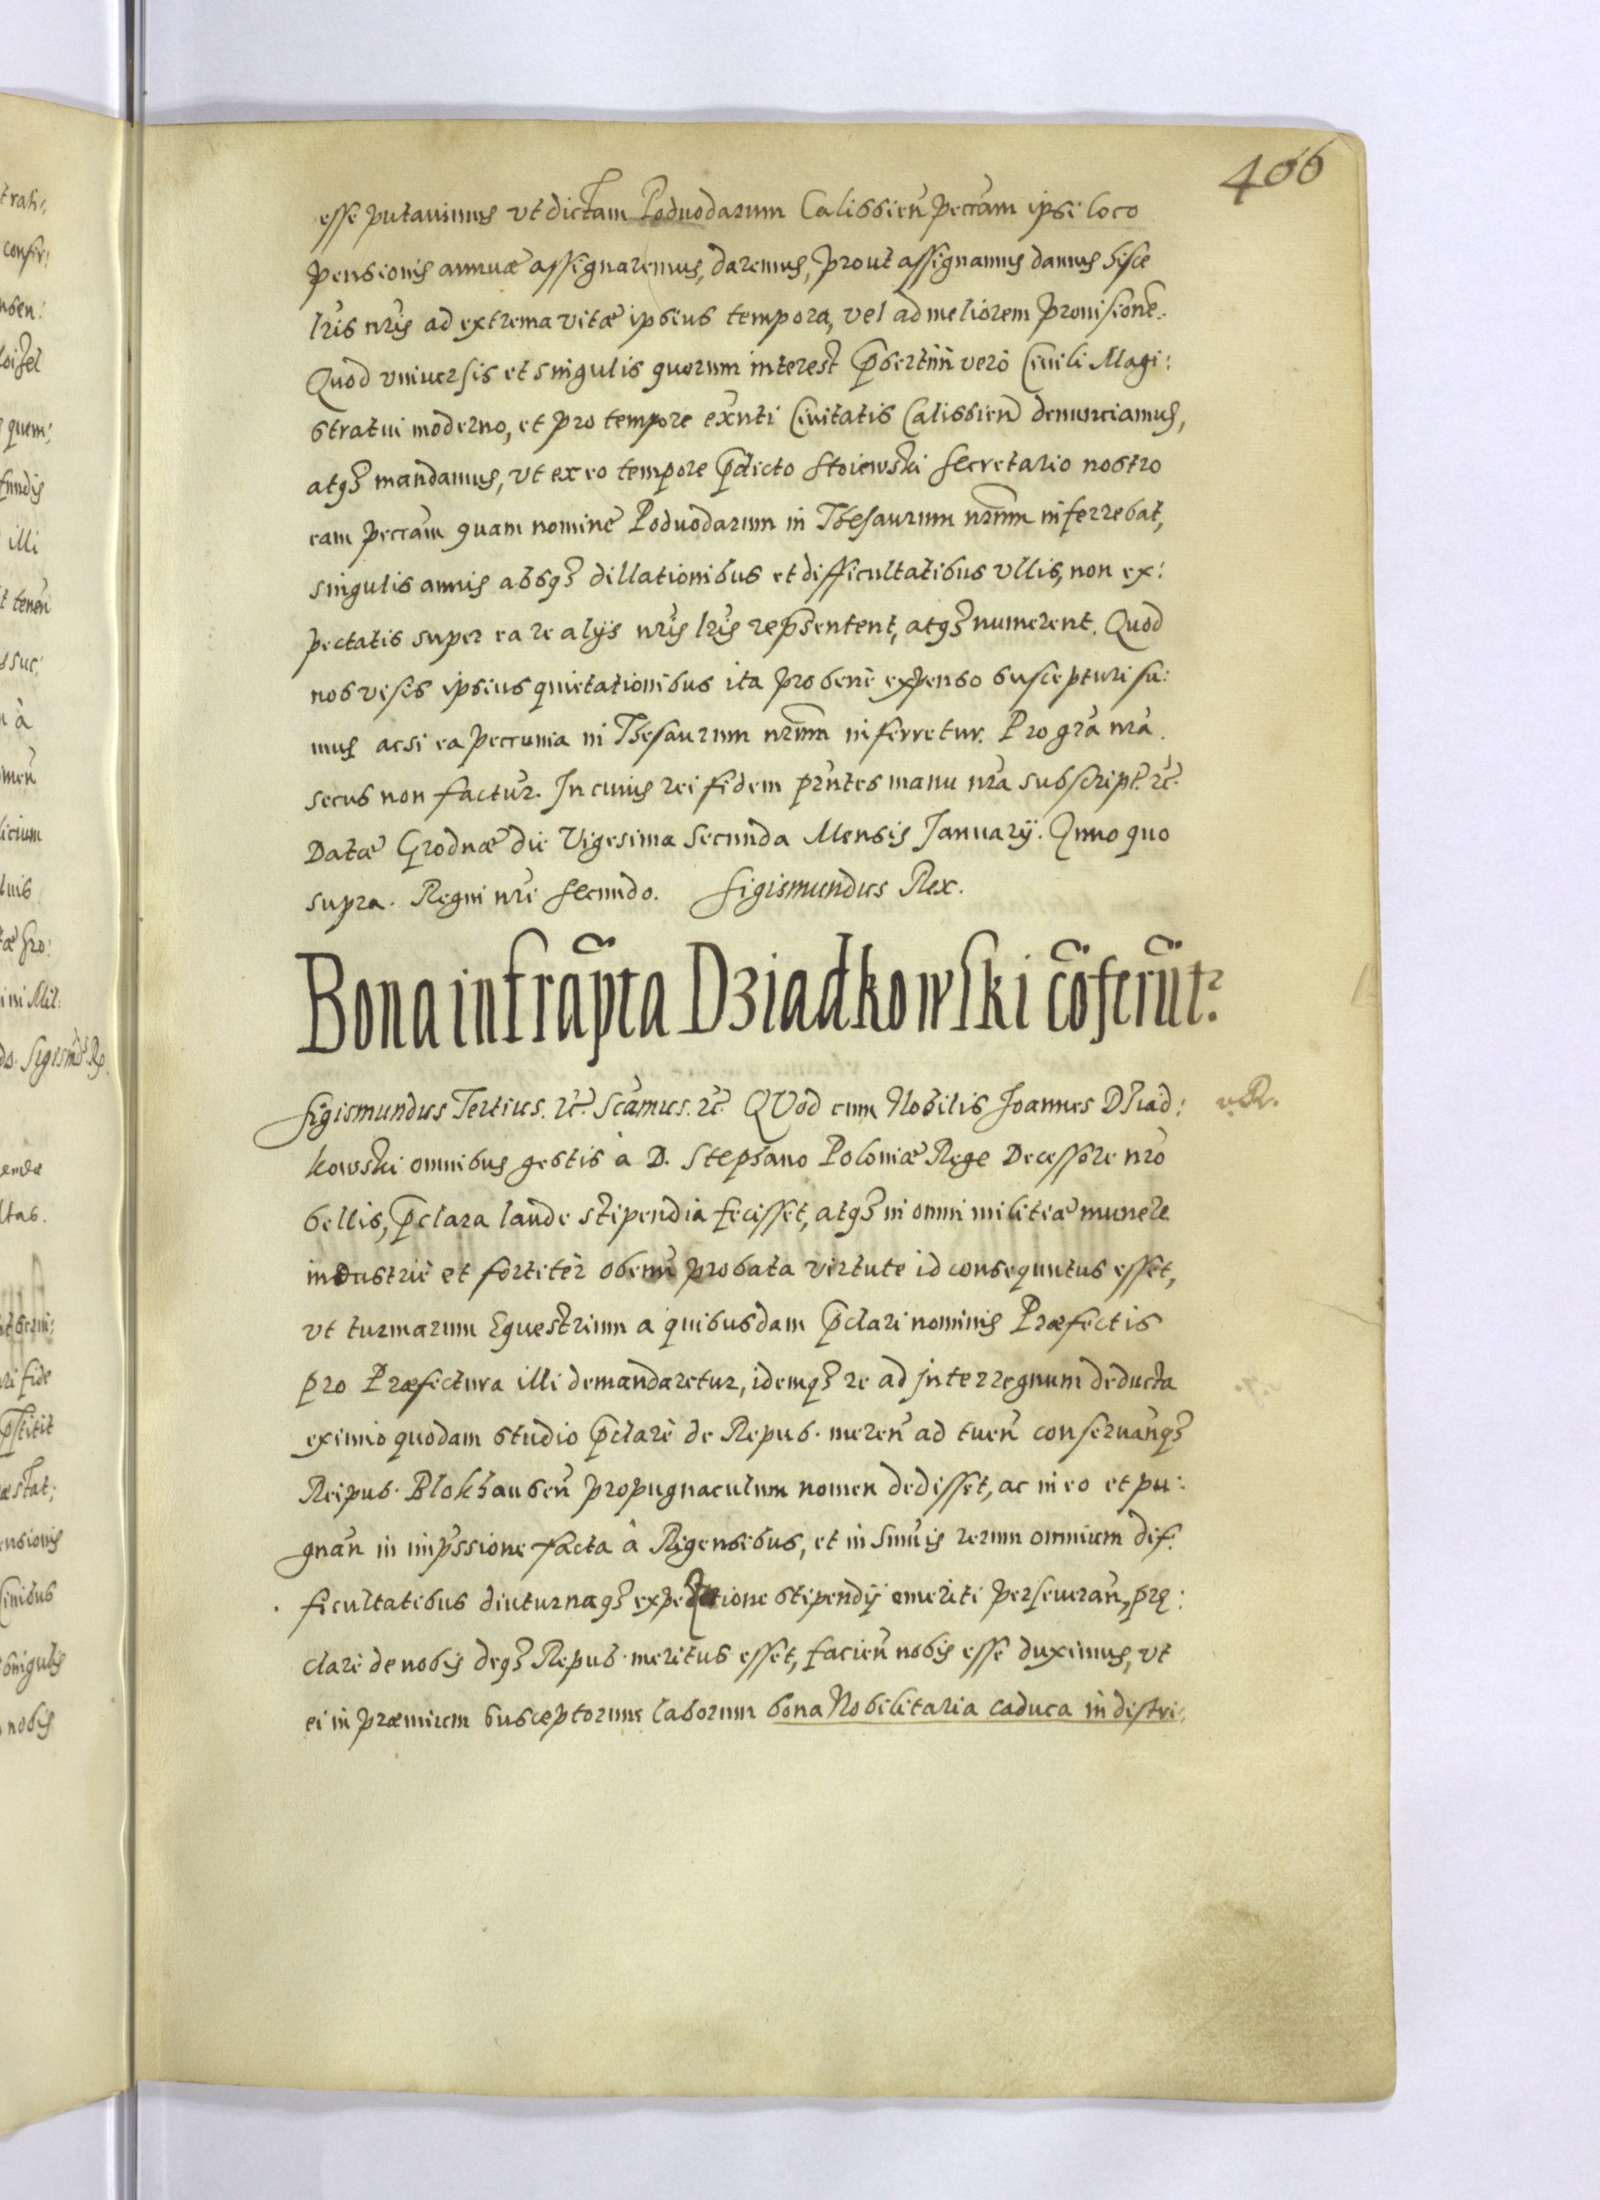 406
esse putauimus vt dictam Podwodarum Calissień pecc̃am ipsi loco
pensionis annuæ assignaremus, daremus, prout assignamus damus hisce
lr̃is nr̃is ad extrema vitæ ipsius tempora, vel ad meliorem prouisionẽ.
Quod vniuersis et singulis quorum interest p̃sertim verò Ciuili Magi:
stratui moderno, et pro tempore exñti Ciuitatis Calissień denunciamus,
atq3 mandamus, vt ex eo tempore p̃dicto Stoiewski Secretario nostro
eam pecc̃am quam nomine Podwodarum in Thesaurum nr̃um inferrebat,
singulis annis absq3 dillationibus et difficultatibus vllis, non ex:
pectatis super ea re alijs nr̃is lr̃is rep̃sentent, atq3 numerent. Quod
nos visis ipsius quietationibus ita pro benè expenso suscepturi su:
mus acsi ea peccunia in Thesaurum nr̃um inferretur. Pro gr̃a nr̃a
secus non factur̃. In cuius rei fidem pr̃ntes manu nr̃a subscript. rc̃.
Datæ Grodnæ die Vigesima Secunda Mensis Januarij. Anno quo
supra. Regni nr̃i Secundo. Sigismundus Rex.
Bona infrap̃ta Dziadkowski cõferũt2.
Sigismundus Tertius. rc̃. Sc̃amus. rc̃. QVod cum Nobilis Joannes Dziad:
kowski omnibus gestis à D. Stephano Poloniæ Rege Decessore nr̃o
bellis, p̃clara laude stipendia fecisset, atq3 in omni militiæ munere
industriè et fortitèr obeuń probata virtute id consequutus esset,
vt turmarum Equestrium a quibusdam p̃clari nominis Præfectis
pro Præfectura illi demandaretur, idemq3 re ad interregnum deducta
eximio quodam studio p̃clarè de Repub. mereń ad tueń conseruanq̃3
Reipub. Blokhauseń propugnaculum nomen dedisset, ac in eo et pu:
gnań in imp̃ssione facta à Rigensibus, et in sum̃is rerum omnium dif:
ficultatibus diuturnaq3 expectatione stipendij emeriti perseuerań, prę:
clarè de nobis deq3 Repub. meritus esset, facień nobis esse duximus, vt
ei in præmium susceptorum laborum bona Nobilitaria caduca in distri: